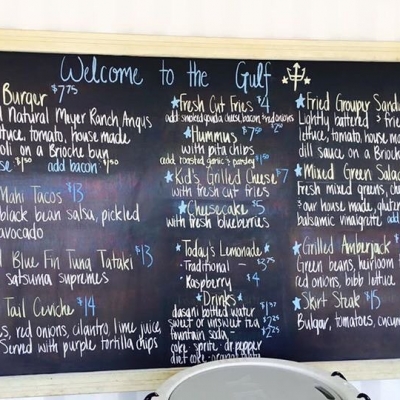 Welcome to the Gulf
Burger $7.75
Natural Meyer Ranch Angus
lettuce, tomato, house made
on a Brioche bun
add bacon $1.50
Mahi Tacos $13
black bean salsa, pickled
avocado
Blue Fin Tuna Tataki $13
satsuma supremes
Tail Ceviche $14
red onions, cilantro, lime juice,
Served with purple tortilla chips
Fresh Cut Fries $4
add smoked gouda cheese, bacon, red onions
Hummus $7.50
with pita chips
add roasted garlic & parsley $1.50
Kid's Grilled Cheese $7
with fresh cut fries
Cheesecake $5
with fresh blueberries
Today's Lemonade
·Traditional $3.75
·Raspberry $4
·Drinks
dasani bottled water
sweet or unsweet tea $2.25
fountain soda $2.25
coke · sprite · dr pepper
diet coke
Fried Grouper
Lightly battered & fried
lettuce, tomato, house
dill sauce on a
Mixed Green
Fresh mixed greens,
& our house made,
balsamic vinaigrette
Grilled Amberjack
Green beans, heirloom
red onions, bibb
Skirt Steak $15
Bulgar, tomatoes,